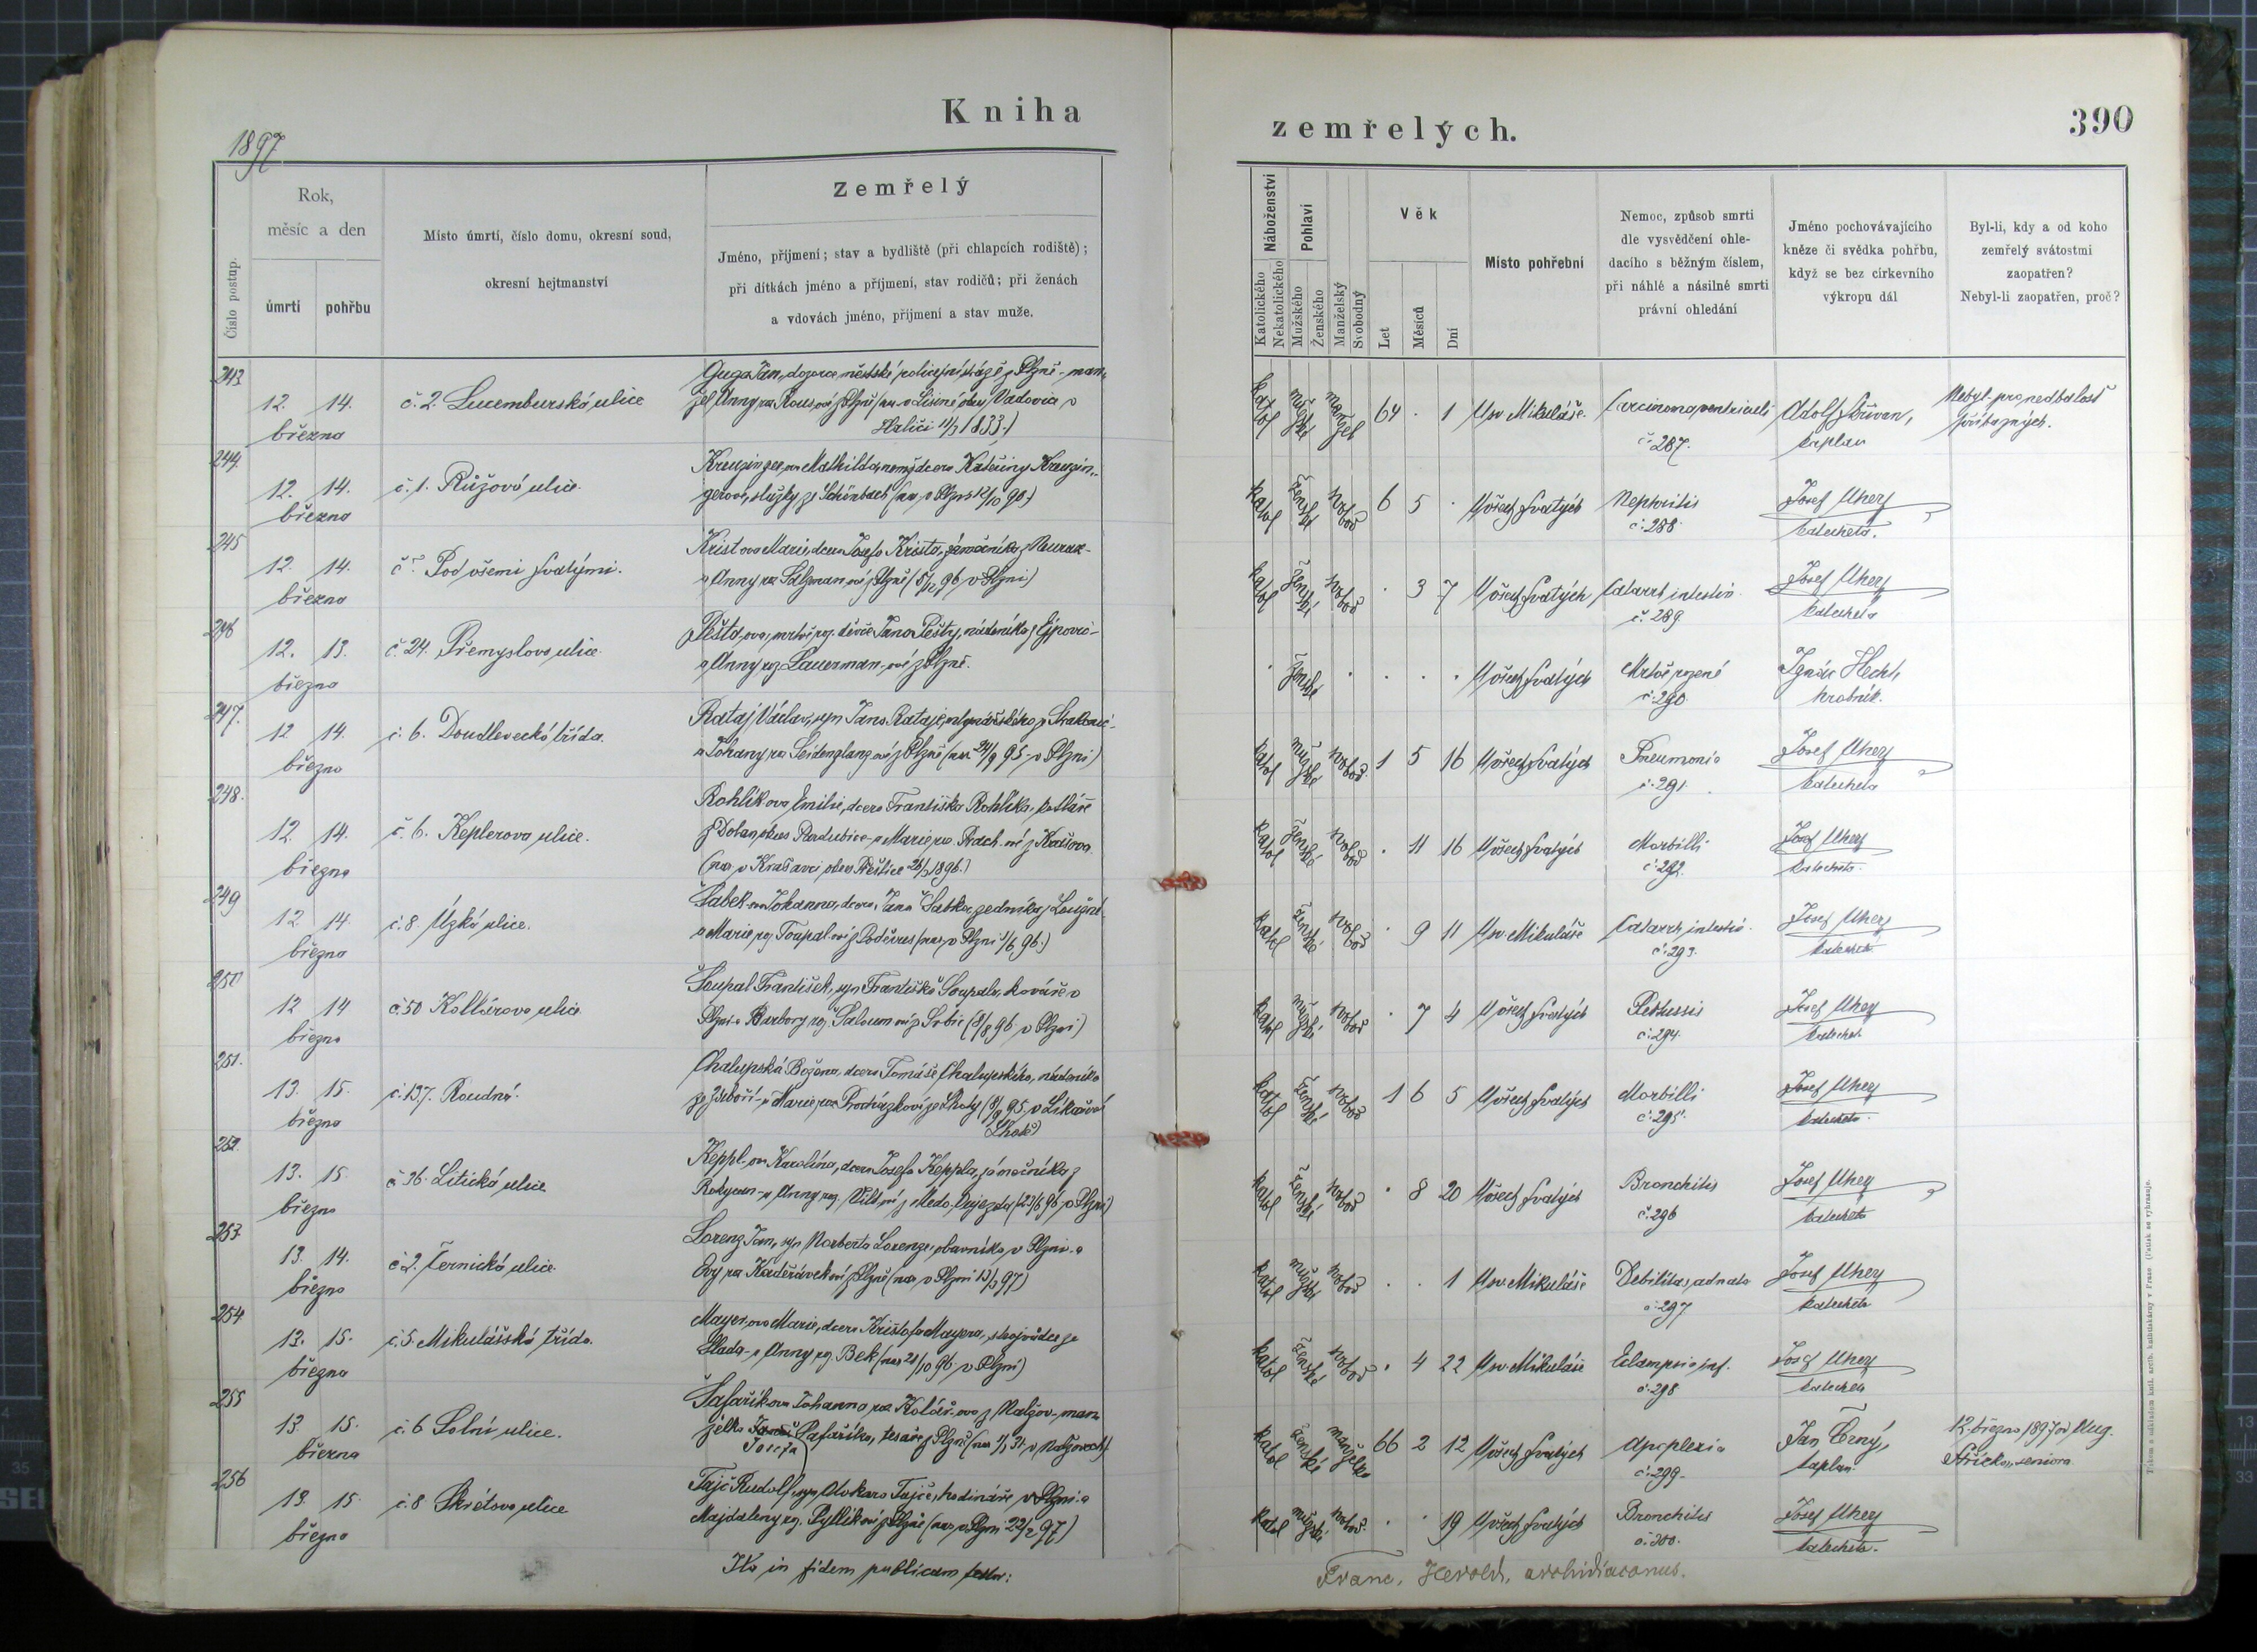 Kniha
zemřelých.
390
1897
Číslo postup.
Rok,
měsíc a den
úmrtí
pohřbu
Místo úmrtí, číslo domu, okresní soud,
okresní hejtmanství
Zemřelý
Jméno, příjmení; stav a bydliště (při chlapcích rodiště);
při dítkách jméno a příjmení, stav rodičů; při ženách
a vdovách jméno, příjmení a stav muže.
Náboženství
Katolického
Nekatolického
Pohlaví
Mužského
Ženského
Manželský
Svobodný
Věk
Let
Měsíců
Dní
Místo pohřební
Nemoc, způsob smrti
dle vysvědčení ohle-
dacího s běžným číslem,
při náhlé a násilné smrti
právní ohledání
Jméno pochovávajícího
kněze či svědka pohřbu,
když se bez církevního
výkropu dál
Byl-li, kdy a od koho
zemřelý svátostmi
zaopatřen?
Nebyl-li zaopatřen, proč?
243
12. 14.
března
č. 2. Lucemburská ulice
Guga Jan, dozorce městské policejní stráže z Plzně - man-
žel Anny roz. Rous ové z Plzně (nar. v Lisině okr. Vadovice v
Haliči 11/3 1833.)
katol mužské manžel 64 . 1 U sv Mikuláše. Carcinoma ventriculi
č. 287.
Adolf
kaplan
Nebyl pro nedbalost
příbuzných.
244.
12. 14.
března
č. 1. Růžová ulice.
Kreuzinger ova Mathilda, nemž. dcera Kateřiny Kreuzin-
gerové, služky ze Schönbach (nar. v Plzni 12/10 90.)
katol ženské svobod 6 5 . U všech svatých Nephritis
č. 288.
Josef Uherz
katecheta.
245
12. 14.
března
Pod všemi svatými.
Krist ova Marie, dcera Josefa Krista, zámečníka z
a Anny roz. Salzman ové z Plzně (5/12 96 v Plzni)
katol ženské svobod . 3 7 U všech svatých Catarrh intestin.
č. 289.
Josef Uherz
katecheta
246
12. 13.
března
č. 24. Přemyslova ulice.
Pešta ova, mrtvě roz. děvče Jana Pešty, nádeníka z Ejpovic -
a Anny roz. Lauerman ové z Plzně.
ženské U všech svatých Mrtvě rozené
č. 290.
Ignác Hecht,
hrobník.
247.
12 14.
března
č. 6. Doudlevecká třída.
Rataj Václav, syn Jana Rataje, z Strakonic -
a Johany roz. Seidenglanz ové z Plzně (nar. 24/9 95 v Plzni)
katol mužské svobod. 1 5 16 U všech svatých Pneumonia
č. 291.
Josef Uherz
katecheta
248.
12 14.
března
č. 6. Keplerova ulice.
Rohlík ova Emilie, dcera Františka Rohlíka, kotláře
z Dolan, okres Pardubice - a Marie roz. ové z
(nar. v okres Přeštice 1896.)
katol ženské svobod . 11 16 U všech svatých Morbilli
č. 292.
Josef Uherz
katecheta.
249
12 14
března
č. 8. Úzká ulice.
Šabek ova Johanna, dcera Jana Šabka, zedníka z
a Marie roz. ové z Podčvres (nar. v Plzni 1/6 96.)
katol ženské svobod . 9 11 U sv. Mikuláše Catarrh intestin.
č. 293.
Josef Uherz
katecheta
250
12 14
března
č 50 Kollárova ulice
Soupal František, syn Františka Soupala, kováře v
Plzni - a Barbory roz. Saloun ové z Srbic (8/8 96 v Plzni)
katol mužské svobod . 7 4 U všech svatých Pertussis
č. 294.
Josef Uherz
katechet.
251.
13. 15.
března
č. 137. Roudná.
Chalupská Božena, dcera Tomáše Chalupského, nádeníka
ze - a Marie roz. Procházkové ze Lhoty (8/9 95 v
Lhotě)
katol ženské svobod 1 6 5 U všech svatých Morbilli
č. 295.
Josef Uherz
katecheta.
252.
13. 15.
března
č 36. Litická ulice
Keppl ova Karolína, dcera Josefa Keppla, zámečníka z
Rokycan - a Anny roz. ové z (23/6 96 v Plzni)
katol ženské svobod . 8 20 U všech svatých Bronchitis
č. 296
Josef Uherz
katecheta
253.
13. 14.
března
č 2. Černická ulice
Lorenz Jan, syn Norberta Lorenze, obuvníka v Plzni - a
Evy roz. Kadeřávek ové z Plzně (nar. v Plzni 13/3 97)
katol mužské svobod . . 1 U sv. Mikuláše Debilitas adnata
č. 297
Josef Uherz
katecheta
254
13. 15.
března
č. 5. Mikulášská třída.
Mayer ova Marie, dcera Krištofa Mayera, strojvůdce ze
- a Anny roz. Bek (nar. 21/10 96. v Plzni)
katol ženské svobod . 4 22 U sv. Mikuláše Eclampsia inf.
č. 298
Josef Uherz
katecheta
255
13 15.
března
č. 6 Solní ulice.
Šafařík ova Johanna roz. Kolář ova z Malžov - man-
želka Josefa Šafaříka, tesaře z Plzně (nar. 1/1 31 v Malžovech)
katol ženské manželka 66 2 12 U všech svatých Apoplexia
č. 299.
Jan Černý,
kaplan.
12. března 1897 od Aug.
Stříčka, seniora.
256
13. 15.
března
č. 8 Skrétova ulice
Tajč Rudolf, syn Otokara Tajče, hodináře v Plzni - a
Majdaleny roz. Pytlík ové z Plzně (nar. v Plzni 22/2 97)
katol mužské svobod. . . 19 U všech svatých Bronchitis
č. 300.
Josef Uherz
katecheta.
Ita in fidem publicam testor:
Franc. Herold, archidiaconus.